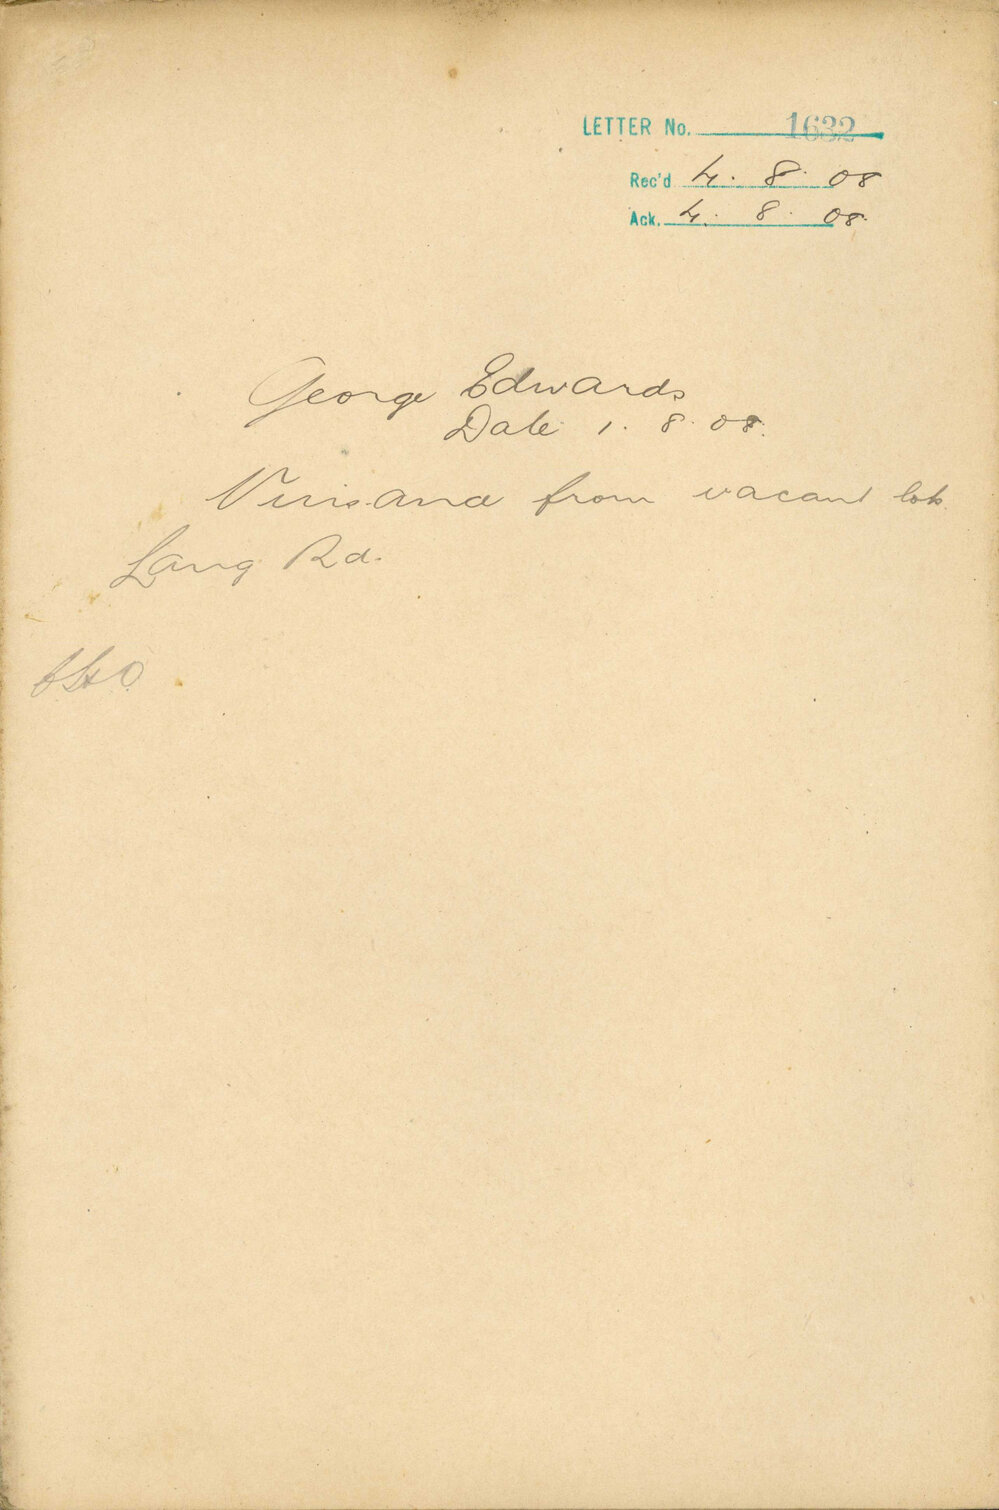 LETTER No. 1632
Rec'd 4. 8. 08
Ack. 4. 8. 08.
George Edwards
Date 1. 8. 08.
from vacant lots
Lang Rd.